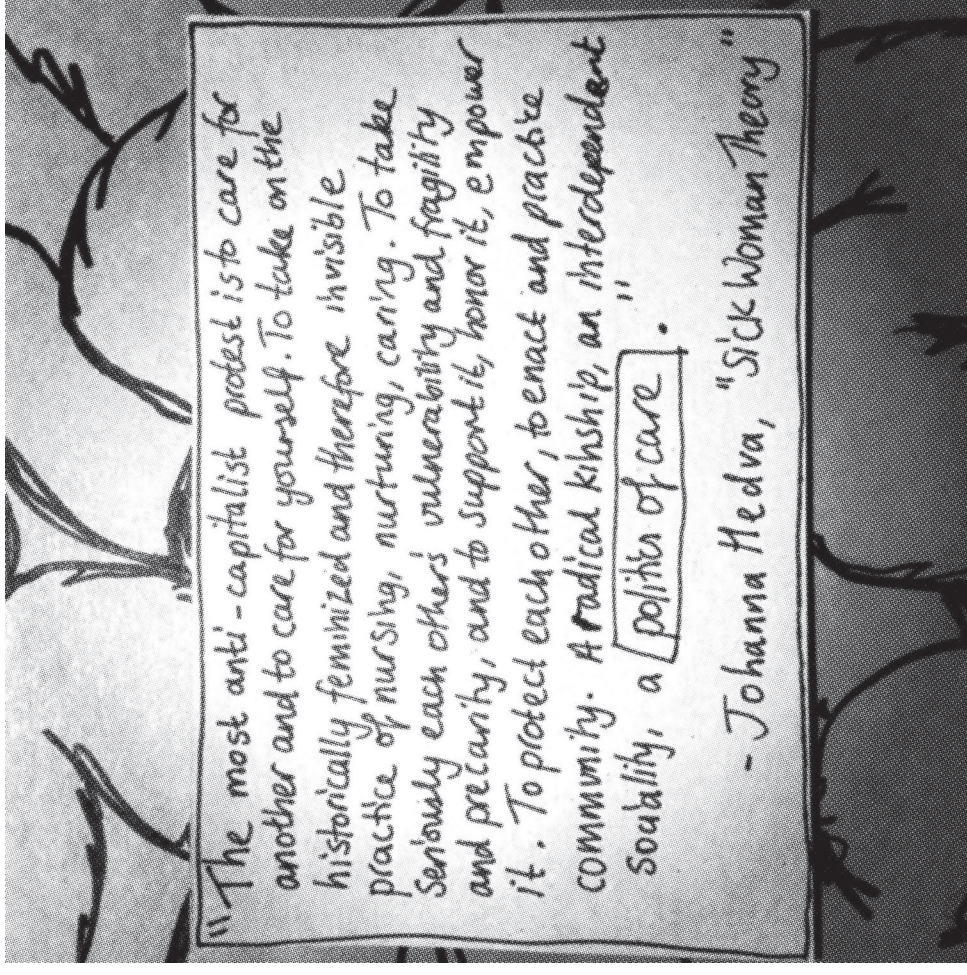 "The most anti-capitalist protest is to care for
another and to care for yourself. To take on the
historically feminized and therefore invisible
practice of nursing, nurturing, caring. To take
seriously each others' vulnerability and fragility
and precarity, and to support it, honor it, empower
it. To protect each other, to enact and practice
community. A radical kinship, an interdependent
sociality, a politics of care."
- Johanna Hedva, "Sick Woman Theory"